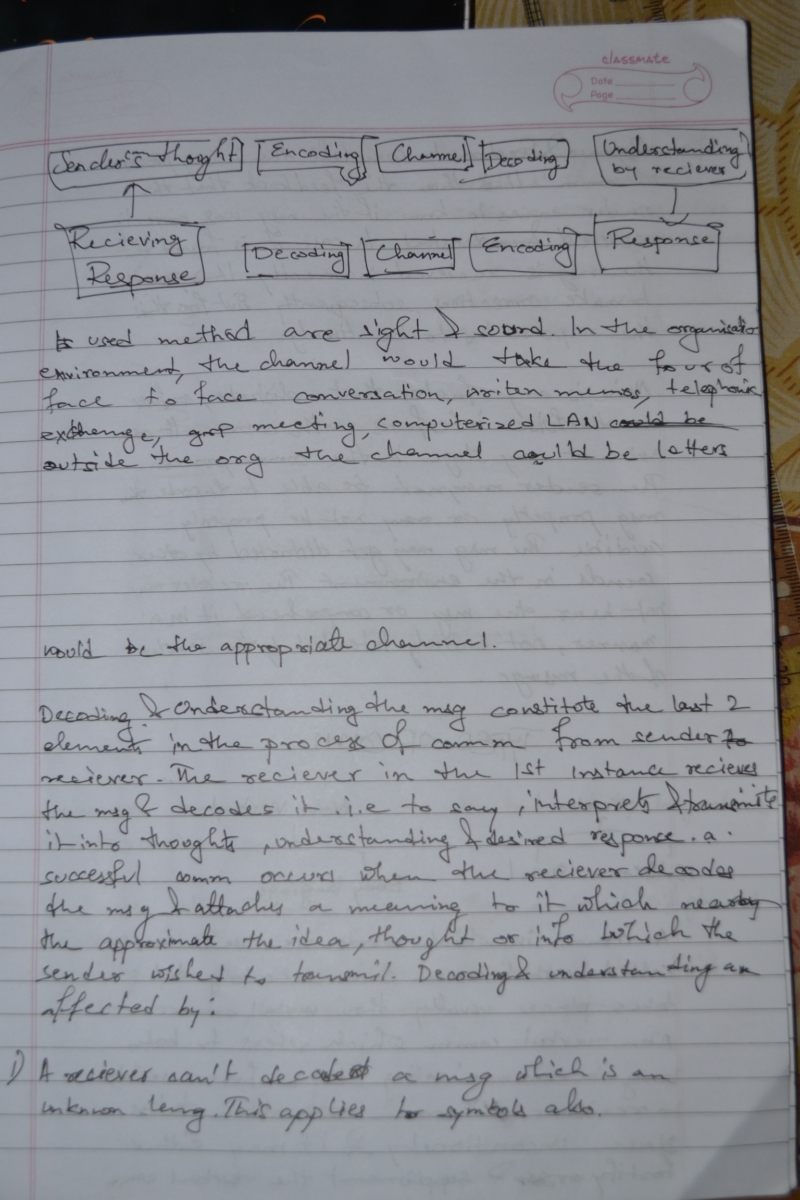 classmate
Date
Page
Sender's thought Encoding Channel Decoding Understanding by reciever
Recieving Response Decoding Channel Encoding Response
used method are sight & sound. In the organisatio
environment, the channel would take the four of
face to face conversation, writen memos, telephonic
exchenge, grp meeting, computerized LAN could be
outside the org the channel could be letters
would be the appropriate channel.
Decoding & Understanding the msg constitute the last 2
elements in the process of comm from sender to
reciever. The reciever in the 1st instance recieves
the msg & decodes it i.e to say, interprets &
it into thoughts, understanding & desired response. a
successful comm occurs when the reciever decodes
the msg & attaches a meaning to it which
the approximate the idea, thought or info which the
sender wished to transmit. Decoding & understanding are
affected by:
1) A reciever can't decode a msg which is an
unknown leng. This applies to symbols also.